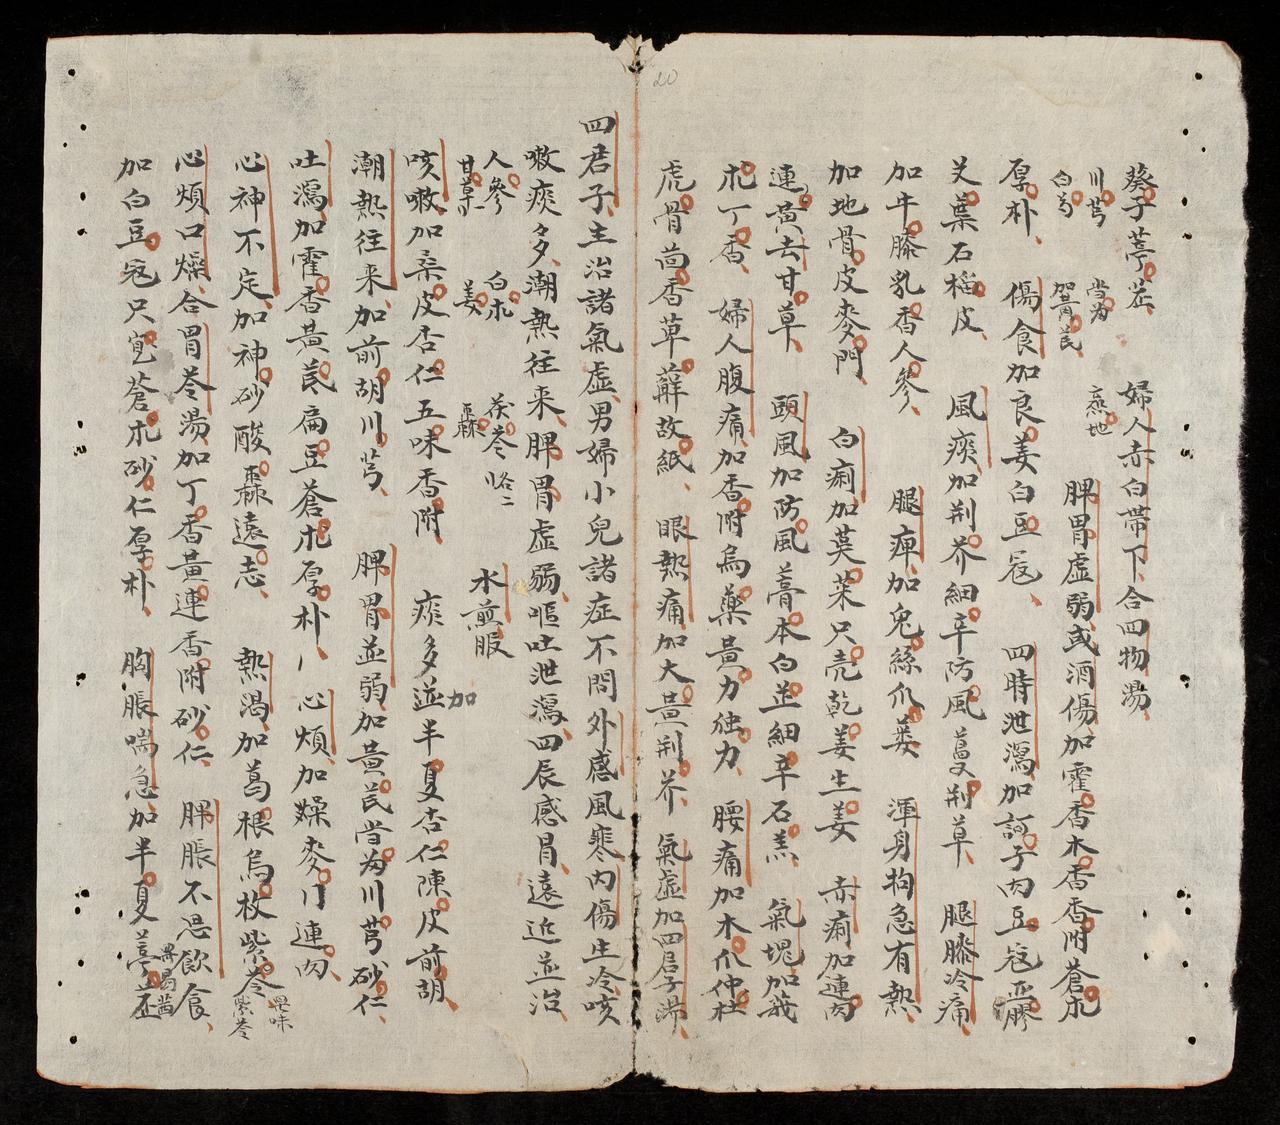 葵子葶苈 婦人赤白帶下合四物湯
川芎 当为 熬地
白芍 加黄芪 脾胃虛弱或酒傷加霍香木香香附蒼朮
厚朴 傷食加良姜白豆寇 四時泄瀉加訶子肉豆寇
艾葉石榴皮 風痰加荆芥細辛防風蔓荆草 腿膝冷痛
加牛膝乳香人參 腿痺加兔絲爪蒌 渾身拘急有熱
加地骨皮麥門 白痢加萸茱只壳乾姜生姜 赤痢加連肉
連黃去甘草 頭風加防風藁本白芷細辛石羔 氣塊加莪
朮丁香 婦人腹痛加香附烏藥黃力独力 腰痛加木爪仲杜
虎骨茴香草薢故紙 眼熱痛加大黃荆芥 氣虛加四君子湯
四君子主治諸氣虛男婦小兒諸症不問外感風寒內傷生冷咳
嗽痰多潮熱往来脾胃虛弱嘔吐泄瀉四辰感冒遠近並治
人參 白朮 茯苓 水煎服
甘草 姜 棗
咳嗽加桑皮杏仁五味香附 痰多並加半夏杏仁陳皮前胡
潮熱往来加前胡川芎 脾胃並弱加黃芪当为川芎砂仁
吐瀉加霍香黃芪扁豆蒼朮厚朴 心煩加燥麥门連肉
心神不定加神砂酸棗遠志 熱渴加葛根烏枚紫苓
心煩口燥合胃苓湯加丁香黃連香附砂仁 脾脹不思飲食
加白豆寇只寔蒼朮砂仁厚朴 胸脹喘急加半夏葶苈